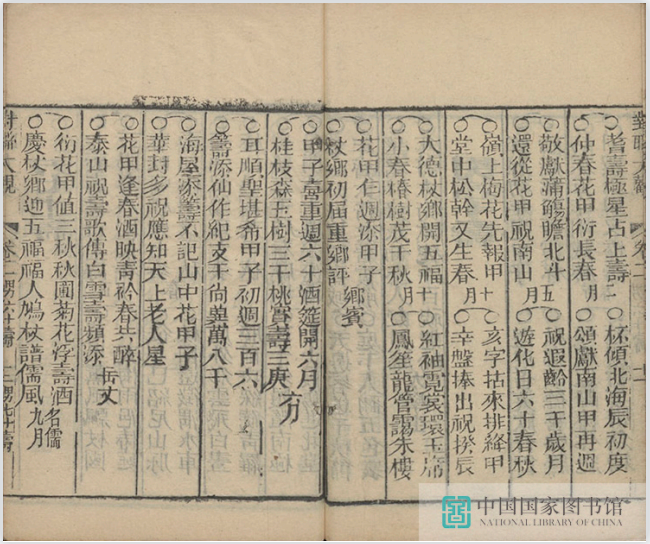 ○耆壽極星占上壽二月 ○杯傾北海辰初度
○仲春花甲衍長春 ○頌獻南山甲再週
○敬獻蒲觴瞻北斗五月 ○祝遐齡三千歲月
○還從花甲祝南山 ○遊化日六十春秋
○嶺上梅花先報甲十月 ○亥字拈來排絳甲
○堂中松幹又生春 ○辛盤捧出祝揆辰
○大德杖鄉開五福十月 ○紅袖霓裳環玉席
○小春椿樹茂千秋 ○鳳笙龍管靄朱樓
○花甲仁週添甲子
○杖鄉初届重鄉評 鄉賓
○甲子喜重週六十酒筵開六月
○桂枝森玉樹三千桃實壽三庚
○耳順聖堪希甲子初週三百六
○籌添仙作紀支干尚羨萬八千
○海屋家籌不記山中花甲子
○華封多祝應知天上老人星
○花甲逢春酒映青衿春共醉
○泰山祝壽歌傳白雪壽頻添 岳丈
○衍花甲值三秋秋圃菊花浮壽酒 名儒
○慶杖鄉迎五福福人鳩杖譜儒風 九月
對聯大觀 卷二 男六十壽 二 男七十壽
中国国家图书馆
NATIONAL LIBRARY OF CHINA